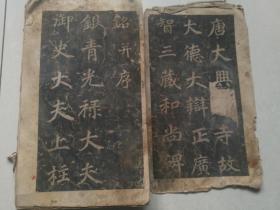 唐大興
寺故
大德大辯正廣
智三藏和尚碑
銘并序
銀青光禄大夫
御史大夫上柱